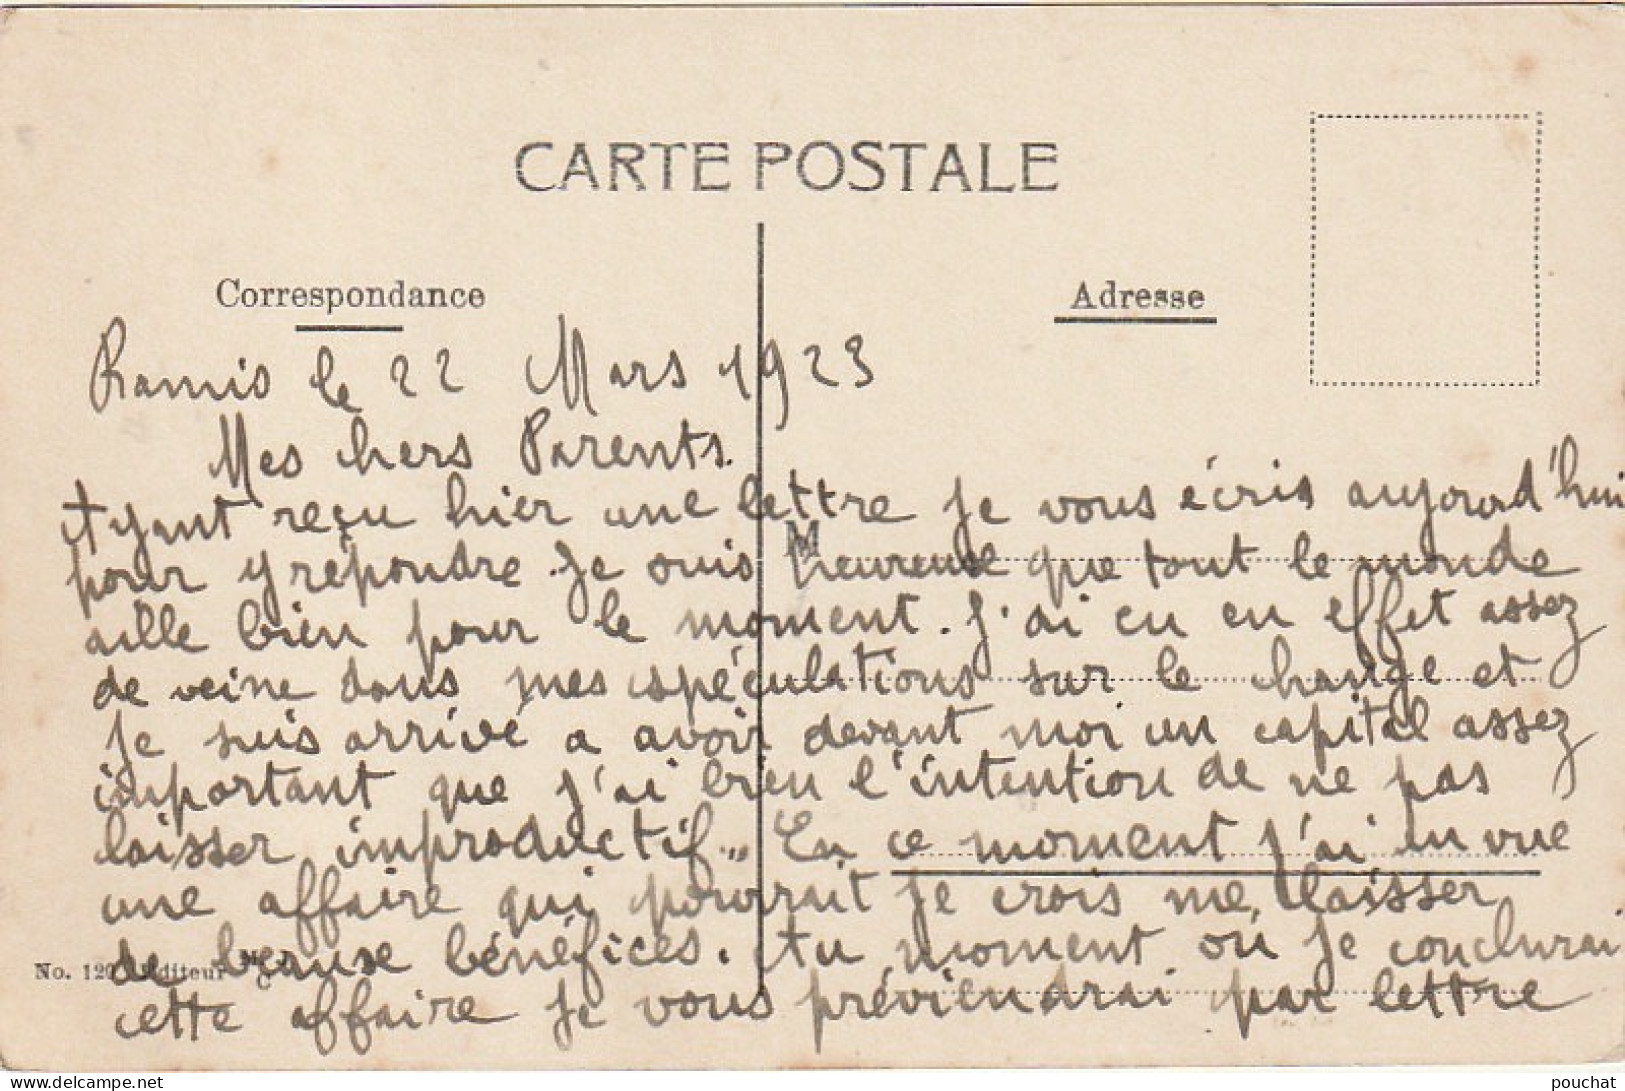 CARTE POSTALE
Correspondance
Adresse
Ramis le 22 Mars 1923
Mes chers Parents.
Ayant reçu hier une lettre je vous écris aujourd'hui
pour y répondre. Je suis heureuse que tout le monde
aille bien pour le moment. J'ai eu en effet assez
de veine dans mes spéculations sur le change et
je suis arrivé a avoir devant moi un capital assez
important que j'ai bien l'intention de ne pas
laisser improductif.. En ce moment j'ai en vue
une affaire qui pourrait je crois me laisser
de beaux bénéfices. Au moment où je conclurai
No. 129 Editeur
cette affaire je vous préviendrai par lettre
pouchat